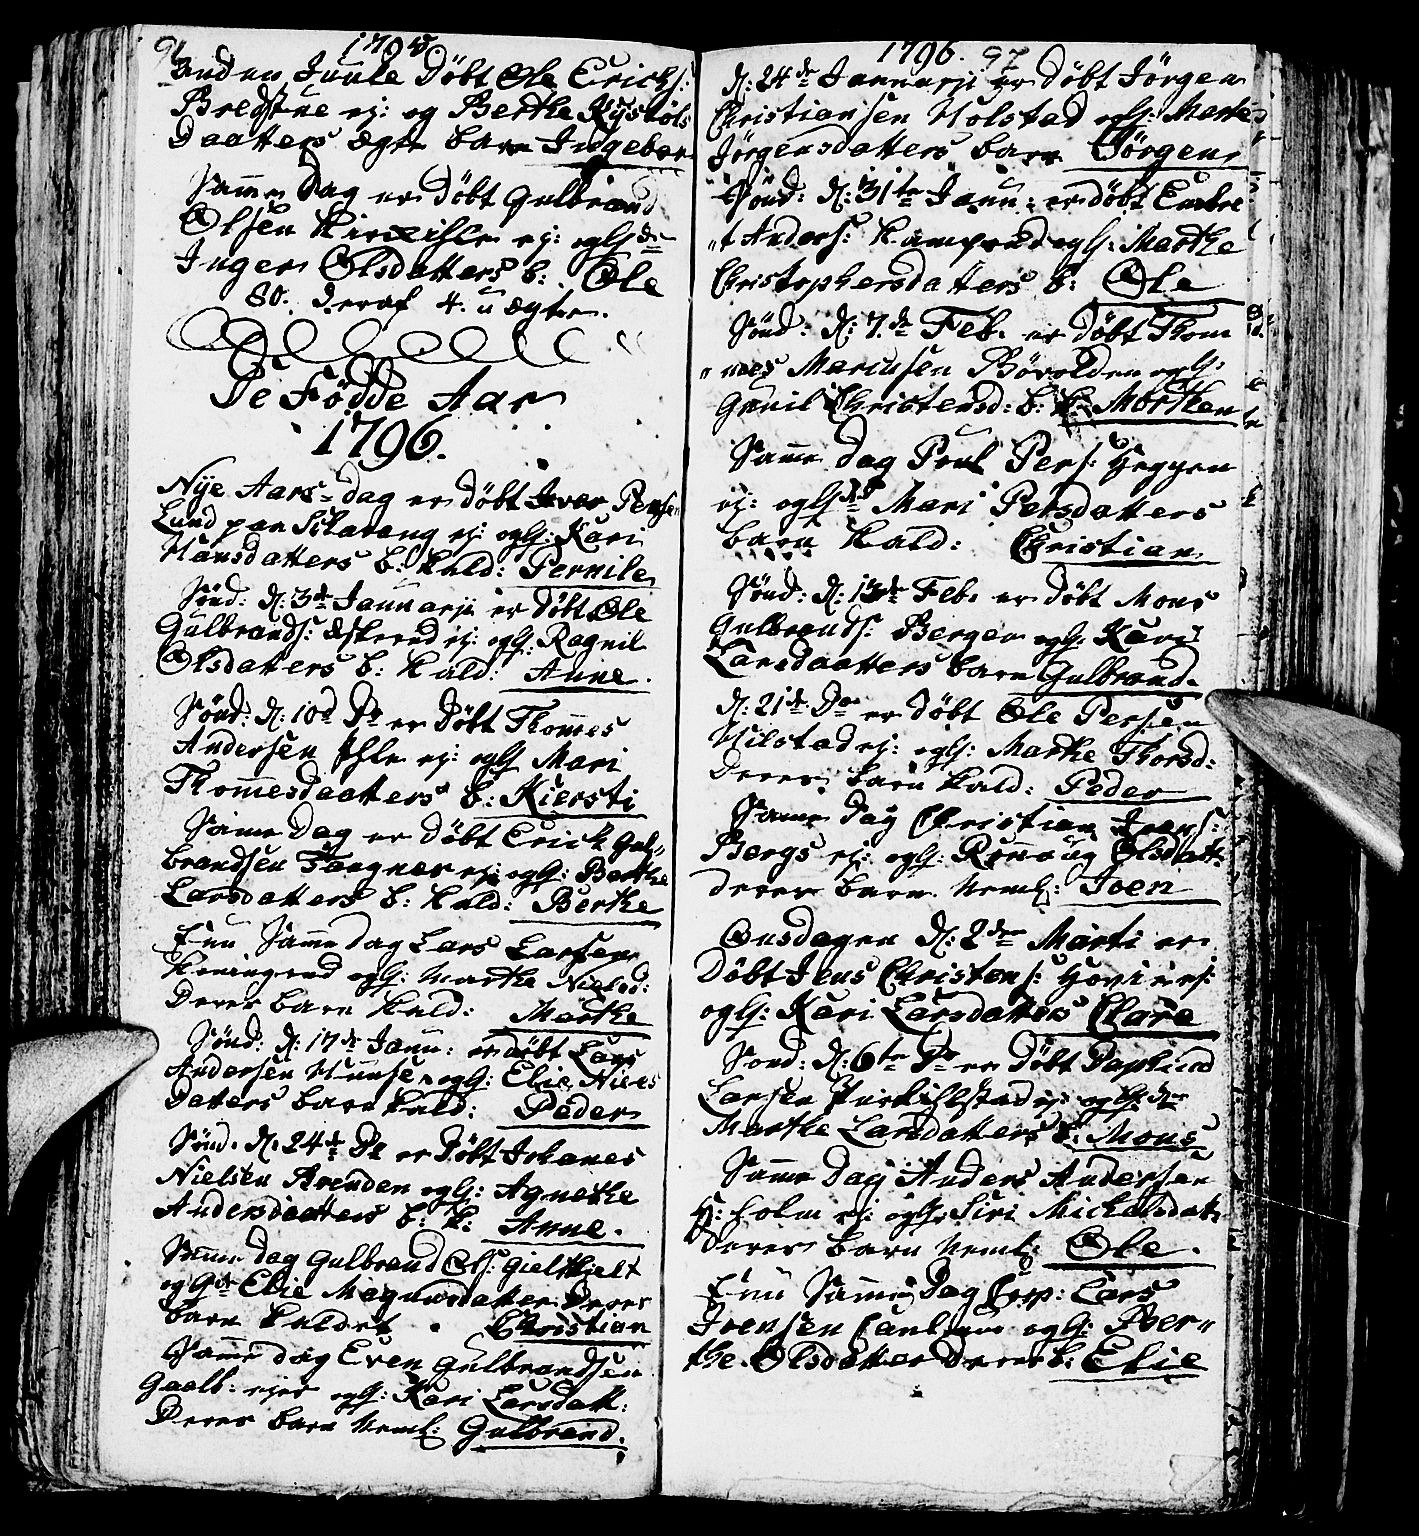 96 1795
anden Juule Døbt Ole Erichs:
ej: og Berthe
Daatters Ægte barn Ingebor
Samme Dag er Døbt Gulbrand
Olsen ej: og Hs:
Inger Olsdatters b: Ole
80. deraf 4. uægte.
De Fødde Aar
1796.
Nye Aars-dag er døbt Iver Persen
Lund paa ej: og Hs: Kari
Hansdatters b: kald: Pernile
Sønd: d: 3de Januarji er døbt Ole
Gulbrands: ej: og Hs: Ragnil
Olsdatters b: kald: Anne.
Sønd: d: 10d Do er Døbt Thommes
Andersen ej: og Hs Mari
Thommesdaatters b: Kiersti
Samme Dag er Døbt Erick Gul-
brandsen ej: og Hs: Berthe
Larsdatters b: kald: Berthe
Enu Samme dag Lars Larsen
og Hs: Marthe Nielsd:
Deres barn kald: Marthe
Sønd: d: 17de Janu: er døbt Lars
Andersen og Hs: Elie Niels
Datters barn kald: Peder
Sønd. d. 24de Do er Døbt Johanes
Nielsen og Hs: Agnethe
Andersdaatters b: k: Anne.
Samme dag Gulbrand Ols:
og Hs Elie Magnusdatter Deres
barn kaldet Christian
Samme dag Even Gulbrandsen
og Hs: Kari Larsdatt:
Deres barn Neml: Gulbrand.
1796. 97
d: 24de Januarji er døbt Jørgen
Christiansen Holstad og Hs: Marthe
Jørgensdatters barn Jørgen
Sønd: d: 31te Janu: er døbt Embre
"t Anders: og Hs: Marthe
Christophersdatters b: Ole
Sønd: d: 7.de Feb. er døbt Thom
" Mariusen og Hs:
Gunil Christensd: b: k: Morthen
Samme dag Poul Pers: Heggen
ej: og Hs Mari Persdatters
barn kald: Christian
Sønd: d: 13de Feb. er døbt Mons
Gulbrands: Bergen og Hs: Kari
Larsdaatters barn Gulbrand.
d: 21de Do er døbt Ole Persen
Hilstad ej: og Hs: Marthe Thorsd:
Deres barn kald: Peder
Samme Dag Christian Ivers:
Bergs ej: og Hs: Olsdatt
deres barn Neml: Joen
Onsdagen d: 2den Marti er
Døbt Jens Christens:
og Hs: Kari Larsdatters Clare
Sønd: d: 6te Do er Døbt
Larsen ej: og Hs:
Marthe Larsdatters b: Mons
Samme Dag Anders Andersen
ej: og Hs Siri Mickelsdat
Deres barn Neml: Ole.
Enu Samme Dag Corp: Lars
Joensen og Hs: Ber"
the Olsdatter Deres b: Elie